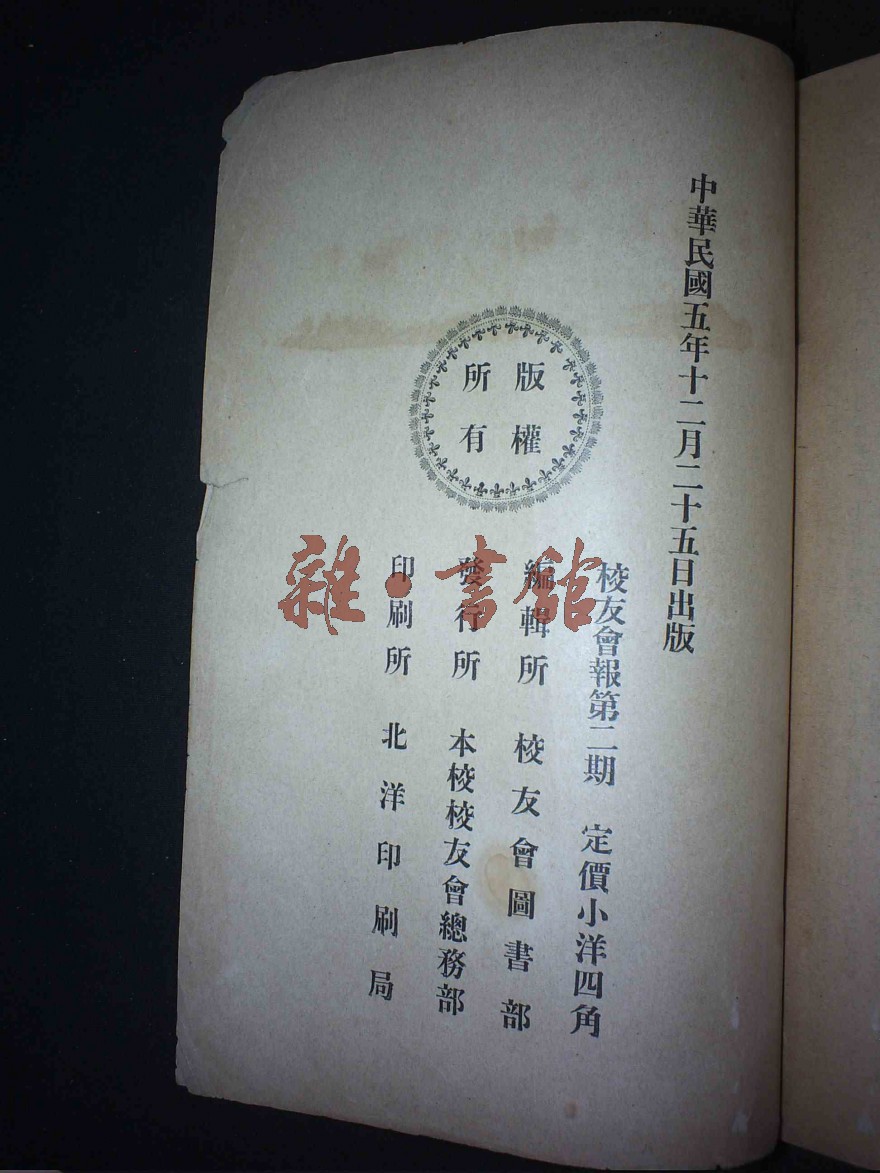 中華民國五年十二月二十五日出版
版權
所有
校友會報第二期 定價小洋四角
編輯所 校友會圖書部
發行所 本校校友會總務部
印刷所 北洋印刷局
雜·書館